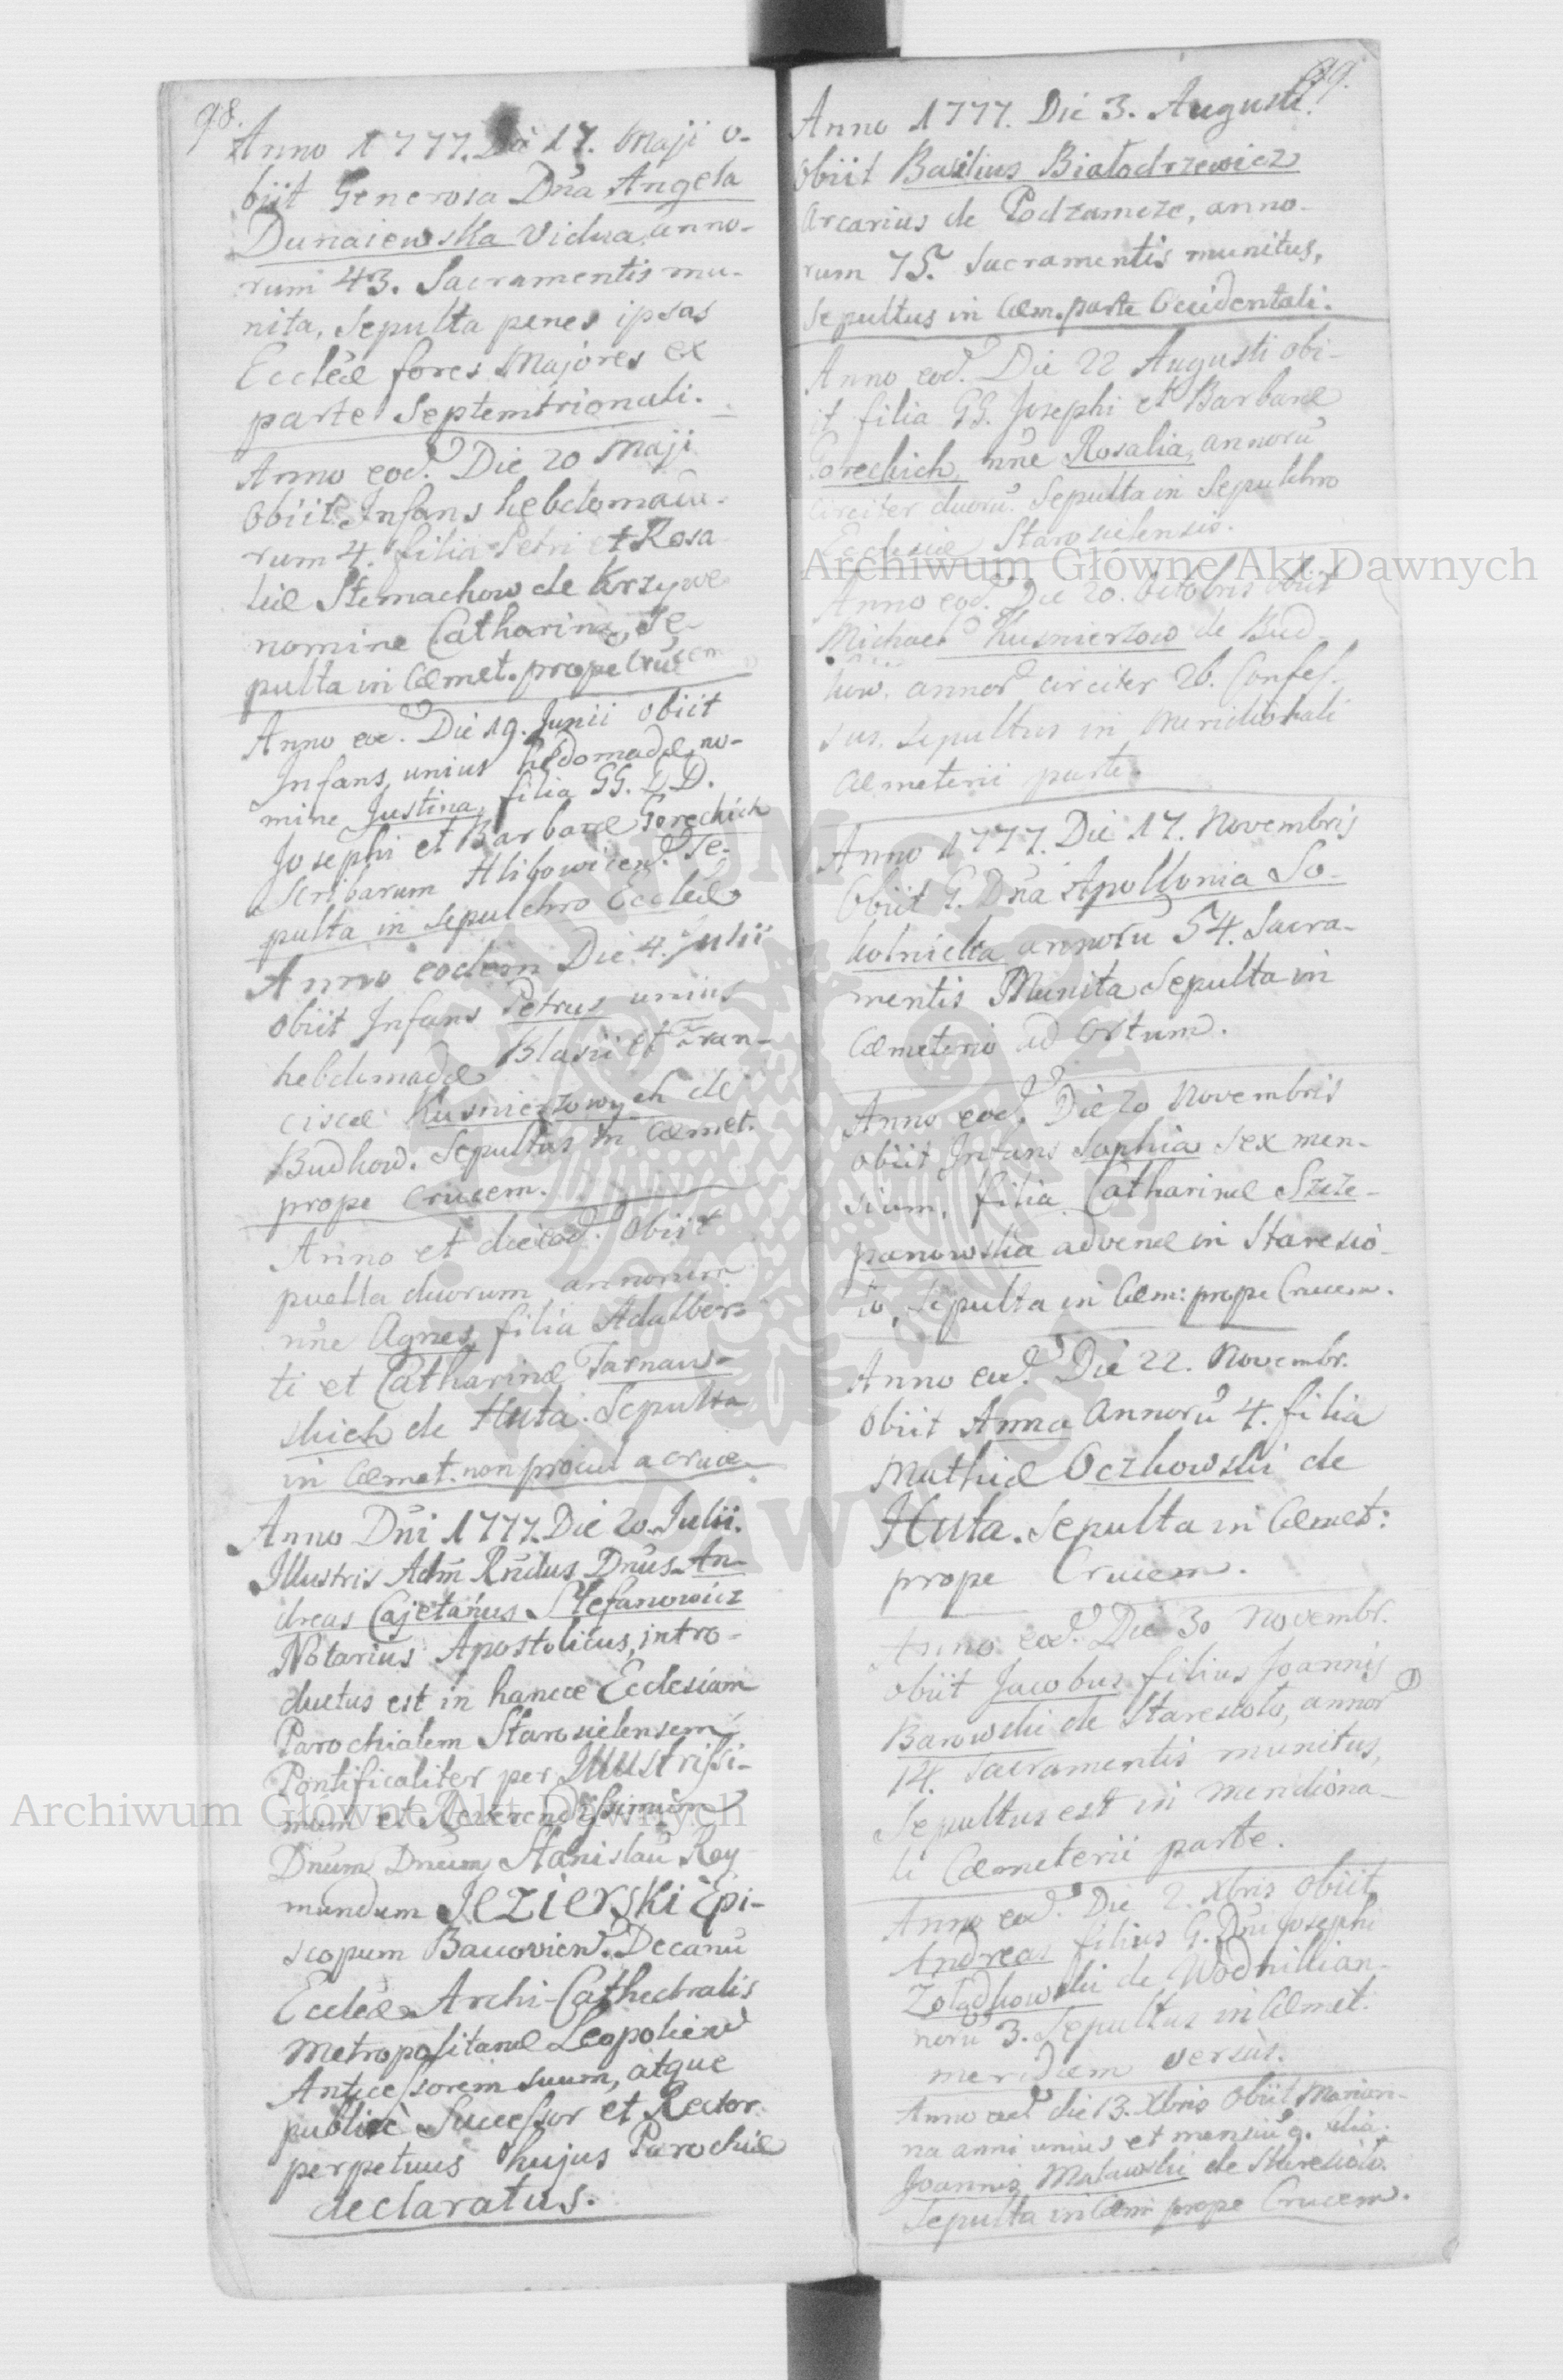 98.
Anno 1777. Die 17. Maji o-
biit Generosa Dña Angela
Dunaiewska Vidua, anno-
rum 43. Sacramentis mu-
nita, Sepulta penes ipsas
Eccleæ fores Majores ex
parte Septemtrionali.
Anno eod. Die 20 Maji
Obiit Infans hebdomada-
rum 4. filia Petri et Rosa
liæ Stemachow de Krzywe
nomine Catharina, Se-
pulta in Cæmet. prope Crucem
Anno eod. Die 19. Junii obiit
Infans, unius hebdomadæ, no-
mine Justina, filia GG. D.D.
Josephi et Barbaræ Gorechich
Scribarum Hlibowicen. Se-
pulta in sepulchro Eccleæ
Anno eodem Die 4. Julii
Obiit Infans Petrus unius
hebdomadæ Blasii et Fran-
ciscæ Kusnierzowych de
Budkow. Sepultus in Cæmet.
prope Crucem.
Anno et die eod. Obiit
puella duorum annorum
nñe Agnes filia Adalber-
ti et Catharinæ Tarnaws-
kich de Huta. Sepulta
in Cæmet. non procul a cruce
Anno Dñi 1777. Die 20. Julii.
Illustris Adm Rñdus Dnus An-
dreas Cajetanus Stefanowicz
Notarius Apostolicus, intro-
ductus est in hancce Ecclesiam
Parochialem Starosielensem
Pontificaliter per Illustrissi-
mum et Reverendissimum
Dnum Dnum Stanislaũ Ray
mundum Jezierski Epi-
scopum Bacovien. Decanũ
Eccleæ Archi-Cathedralis
Metropolitanæ Leopolien
Antecessorem suum, atque
publice Successor et Rector
perpetuus hujus Parochiæ
declaratus.
99.
Anno 1777. Die 3. Augusti
Obiit Basilius Białodrzewicz
Arcarius de Podzamcze, anno-
rum 75. Sacramentis munitus,
Sepultus in Cæm. parte Occidentali.
Anno eod. Die 22 Augusti obi-
it filia GG. Josephi et Barbaræ
Gorechich nñe Rosalia, annorũ
circiter duorũ. Sepulta in Sepulchro
Ecclesiæ Starosielensis.
Anno eod. Die 20. Octobris obiit
Michael Kusnierzow de Bud-
kow. annor circiter 26. Confes-
sus. Sepultus in Meridionali
Cæmeterii parte.
Anno 1777. Die 17. Novembris
Obiit G. Dña Apollonia So-
kolnicka annorũ 54. Sacra-
mentis Munita Sepulta in
Cæmeterio ad Ortum.
Anno eod. Die 20 Novembris
obiit Infans Sophia sex men-
sium, filia Catharinæ Szcze-
panowska advenæ in Staresio-
ło, Sepulta in Cæm: prope Crucem.
Anno eod. Die 22. Novembr.
Obiit Anna Annorũ 4. filia
Mathiæ Oczkowski de
Huta. Sepulta in Cæmet:
prope Crucem.
Anno eod. Die 30 Novembr.
obiit Jacobus filius Joannis
Barowski de Staresioło, annor
14. Sacramentis munitus,
Sepultus est in meridiona-
li Cæmeterii parte.
Anno eod. Die 2. Xbris obiit
Andreas filius G. Dñi Josephi
Zołądkowski de Wodniki an-
norũ 3. Sepultus in Cæmet.
meridiem versus.
Anno eod die 13. Xbris Obiit Marian-
na anni unius et mensiũ 9. filia
Joannis Malawski de Staresioło.
Sepulta in Cæm prope Crucem.
Archiwum Głowne Akt Dawnych
Archiwum Głowne Akt Dawnych
ARCHIWUM GŁÓWNE AKT DAWNYCH